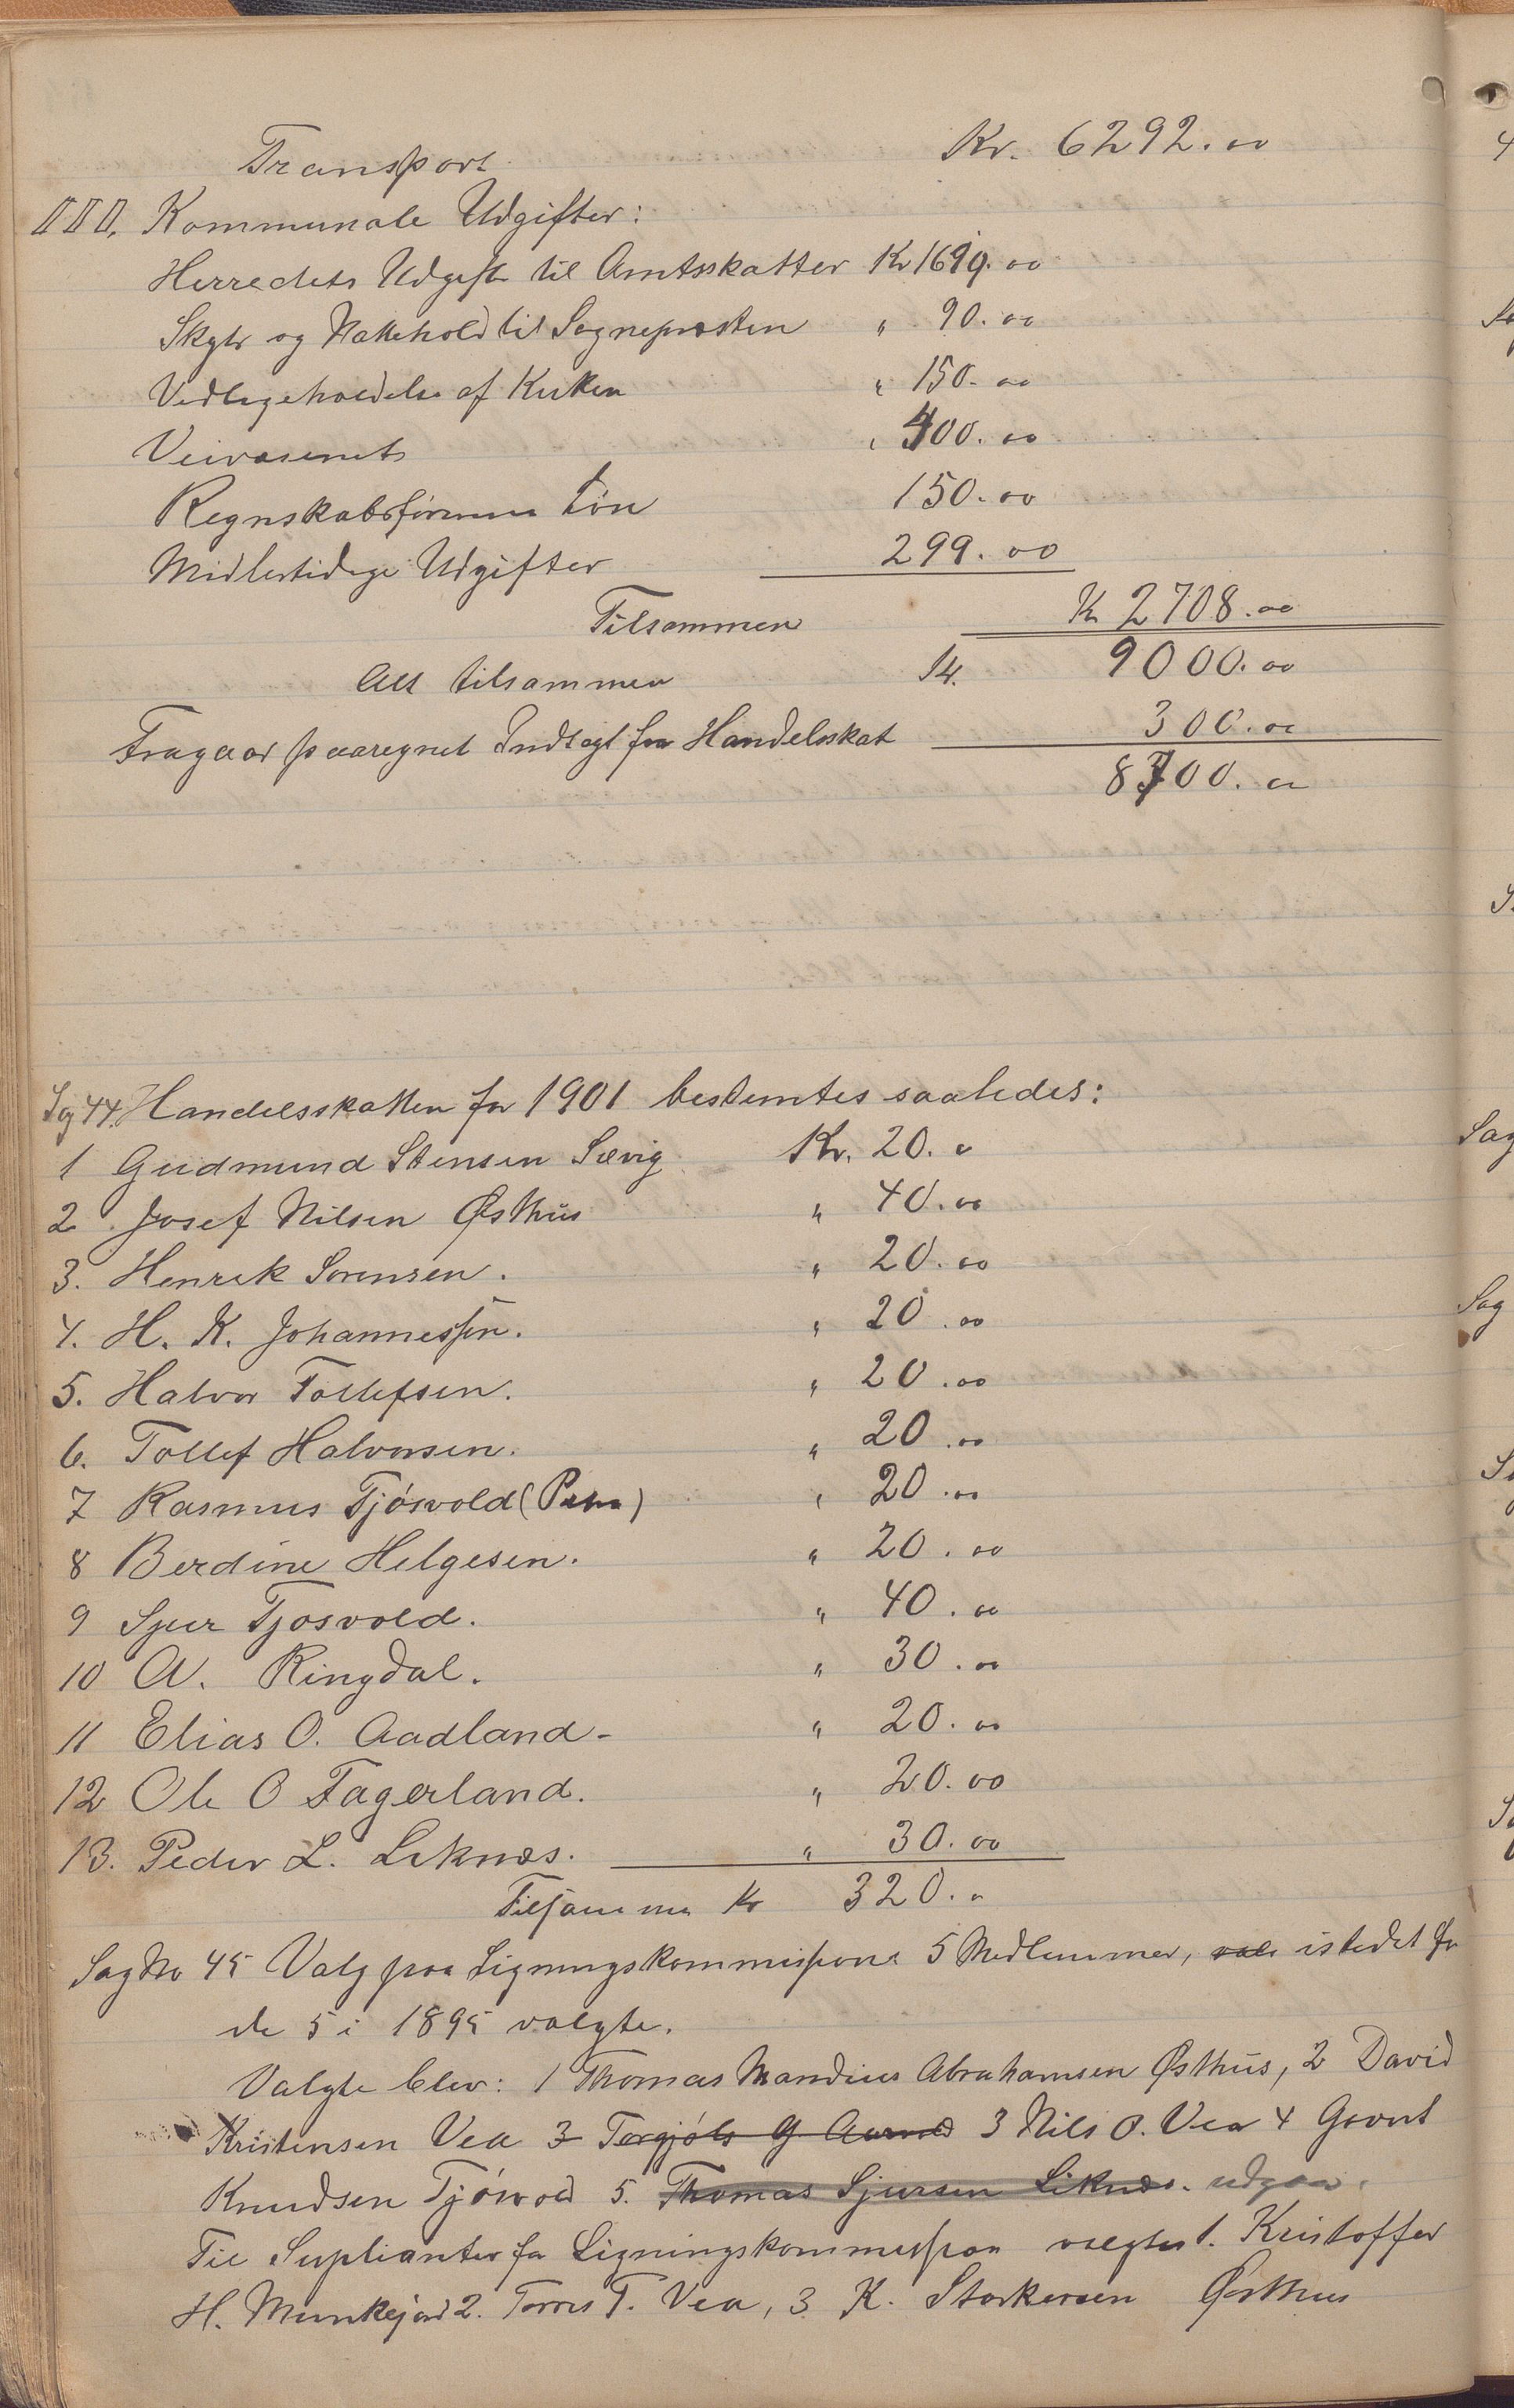 Transport Kr. 6292.00
III. Kommunale Udgifter:
Herredets Udgift til Amtsskatter Kr 1619.00
Skyts og Hestehold til Sognepresten " 90.00
Vedligeholdelse af Kirken " 150.00
Veivæsenet " 400.00
Regnskabsførerens Løn 150.00
Midlertidige Udgifter 299.00
Tilsammen Kr 2708.00
Alt tilsammen Kr. 9000.00
Fragaar paaregnet Indtægt fra Handelsskat 300.00
8700.00
Sag 44. Handelsskatten for 1901 bestemtes saaledes:
1 Gudmund Stensen Sævig Kr. 20.0
2 Josef Nilsen Østhus " 40.00
3. Henrek Sørensen. " 20.00
4. H. K. Johannessen. " 20.00
5. Halvor Tollefsen. " 20.00
6. Tollef Halvorsen. " 20.00
7 Rasmus Tjøsvold ( ) " 20.00
8 Berdine Helgesen. " 20.00
9 Sjur Tjøsvold. " 40.00
10 A. Ringdal. " 30.00
11 Elias O. Aadland - " 20.00
12 Ole O Fagerland. " 20.00
13. Peder L. Liknæs. " 30.00
Tilsammen Kr 320.0
Sag No 45 Valg paa Ligningskommissions 5 Medlemmer, valg istedet for
de 5 i 1895 valgte.
Valgte blev: 1 Thomas Mandius Abrahamsen Østhus, 2 David
Kristensen Vea 3 Torgjøls G 3 Nils O. Vea 4 Gavnt
Knudsen Tjøsvold 5. Thomas Sjursen Liknæs. udgaar.
Til Suplianter for Ligningskommission valgtes 1. Kristoffer
H. Munkejord 2. Torres T. Vea, 3 K. Storkersen Østhus